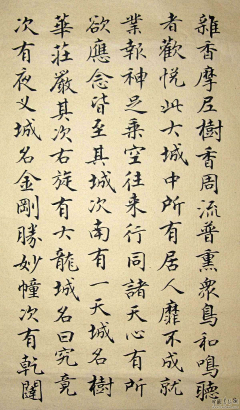 雜香摩尼樹香周流普熏衆鳥和鳴聽
者歡悅此大城中所有居人靡不成就
業報神足乘空往来行同諸天心有所
欲應念皆至其城次南有一天城名樹
華莊嚴其次右旋有大龍城名曰究竟
次有夜义城名金剛勝妙幢次有乾闥